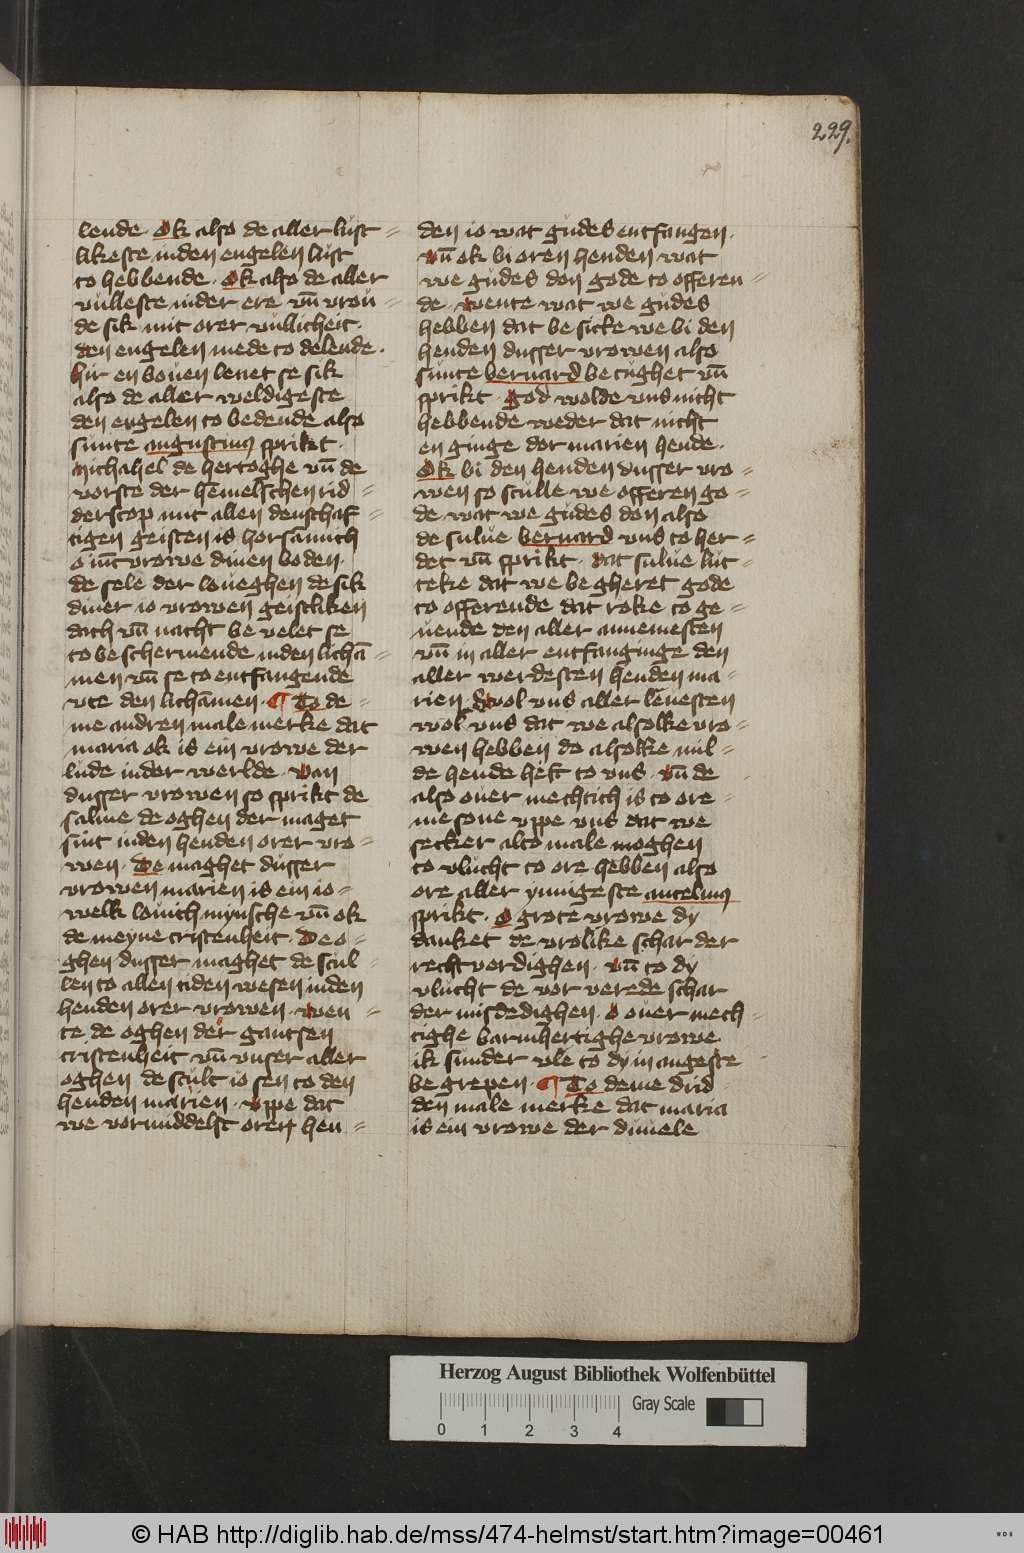 229.
lende. Ok also de aller lust=
likeste in den engelen lust
to hebbende. Ok also de aller
vulleste in der ere vn̄ vrou=
de sik mit orer vullicheit.
den engelen mede to delende.
hir en bouen leuet se sik
also de aller weldigeste
den engelen to bedende also
sunte augustinus sprikt.
Michahel de hertoghe vn̄ de
vorste der hēmelschen rid=
derscop mit allen denschaf=
tigen geisten is horsamich
o iūcvrowe dinen boden.
de sele der loueghen de sik
diner io vrowen geistliken
dach vn̄ nacht be velet se
to be schermende in den lichā=
men vn̄ se to entfangende
vte den lichāmen. ¶ To de=
me andren male merke dat
maria ok is ein vrowe der
lude in der werlde. van
dusser vrowen so sprikt de
salme de oghen der maget
sint in den henden orer vro=
wen. De maghet dusser
vrowen marien is ein io=
welk louich mynsche vn̄ ok
de meyne cristenheit. De o=
ghen dusser maghet de scul=
len to allen tiden wesen in den
henden orer vrowen. wen=
te de oghen der gantsen
cristenheit vn̄ vnser aller
oghen de scult io sen to den
henden marien. vppe dat
we vormiddelst oren hen=
den io wat gudes entfangen.
vn̄ ok bi oren henden wat
we gudes don gode to offeren=
de. wente wat we gudes
hebben dat be sitte we bi den
henden dusser vrowen also
sunte bernard be tughet vn̄
sprikt. god wolde vns nicht
hebbende weder dat nicht
en ginge dor marien hende.
Ok bi den henden dusser vro=
wen so sculle we offeren go=
de wat we gudes don also
de sulue bernard vns to her=
det vn̄ sprikt. dat sulue lut=
teke dat we be gheret gode
to offerende dat roke to ge=
uende den aller annemesten
vn̄ in aller entfanginge den
aller werdesten henden ma=
rien. wol vns aller leuesten
wol vns dat we alsolke vro=
wen hebben do alsolke mil=
de hende heft to vns. vn̄ de
also ouer mechtich is to ore=
me sone vppe vns dat we
secker alto male moghen
to vlucht to ore hebben also
ore aller ynnigeste ancelmus
sprikt. O grote vrowe dy
danket de vrolike schar der
recht verdighen. vn̄ to dy
vlucht de vor verede schar
der misdedighen. o ouer mech=
tighe barmhertighe vrowe
ik sunder vle to dy in angeste
be grepen. ¶ To deme drid
den male merke dat maria
is ein vrowe der duuele
Herzog August Bibliothek Wolfenbüttel
Gray Scale
0 1 2 3 4
© HAB http://diglib.hab.de/mss/474-helmst/start.htm?image=00461